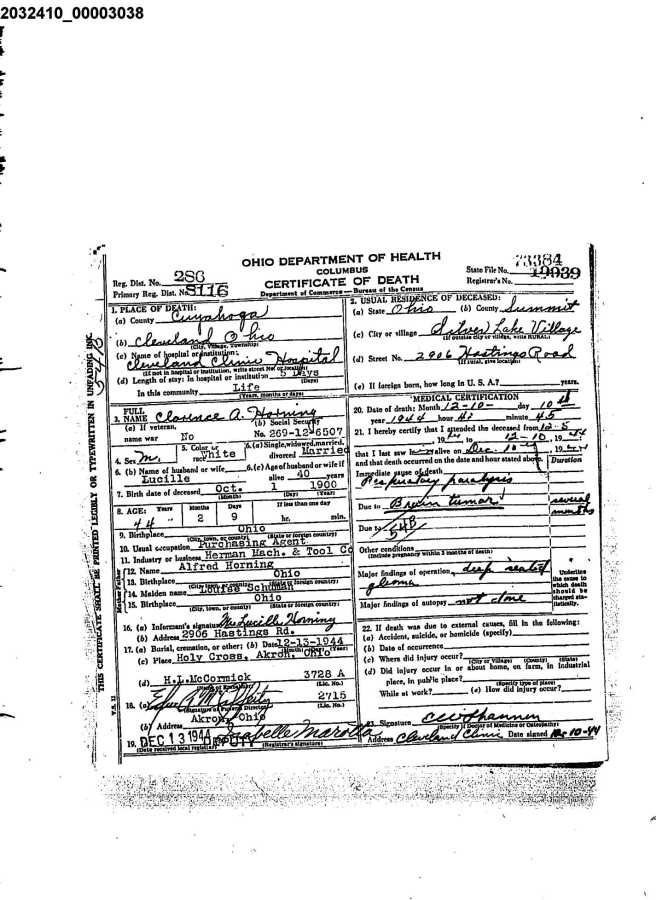 2032410_00003038
OHIO DEPARTMENT OF HEALTH
COLUMBUS
CERTIFICATE OF DEATH
Department of Commerce—Bureau of the Census
Reg. Dist. No. 286
Primary Reg. Dist. No. 8116
State File No. 73384
Registrar's No. 19939
1. PLACE OF DEATH:
(a) County Cuyahoga
(b) Cleveland Ohio
(City, Village, Township)
(c) Name of hospital or institution:
Cleveland Clinic Hospital
(If not in hospital or institution, write street No. or location)
(d) Length of stay: In hospital or institution 5 Days
(Days)
In this community Life
(Years, months or days)
2. USUAL RESIDENCE OF DECEASED:
(a) State Ohio (b) County Summit
(c) City or village Silver Lake Village
(If outside city or village, write RURAL)
(d) Street No. 2906 Hastings Road
(If rural, give location)
(e) If foreign born, how long in U. S. A.? years.
3. FULL NAME Clarence A. Horning
(a) If veteran, name war No
(b) Social Security No. 269-12-6507
4. Sex M.
5. Color or race White
6. (a) Single, widowed, married, divorced Married
6. (b) Name of husband or wife Lucille
6. (c) Age of husband or wife if alive 40 years
7. Birth date of deceased Oct. 1 1900
(Month) (Day) (Year)
8. AGE: Years Months Days If less than one day
44 2 9 hr. min.
9. Birthplace Ohio
(City, town, or county) (State or foreign country)
10. Usual occupation Purchasing Agent
11. Industry or business Herman Mach. & Tool Co
Father
12. Name Alfred Horning
13. Birthplace Ohio
(City, town, or county) (State or foreign country)
Mother
14. Maiden name Louise Schuman
15. Birthplace Ohio
(City, town, or county) (State or foreign country)
16. (a) Informant's signature Mrs Lucille Horning
(b) Address 2906 Hastings Rd.
17. (a) Burial, cremation, or other; (b) Date 12-13-1944
(Month) (Day) (Year)
(c) Place Holy Cross, Akron, Ohio
(d) H.L.McCormick 3728 A
(Lic. No.)
18. (a) 2715
(Signature of Funeral Director) (Lic. No.)
(b) Address Akron, Ohio
19. DEC 13 1944 DEPUTY Isabelle Marotta
(Date received local registrar) (Registrar's signature)
MEDICAL CERTIFICATION
20. Date of death: Month 12-10- day 10th
year 1944 hour 4 minute 45
21. I hereby certify that I attended the deceased from 12-5
, 1944 to 12-10, 1944
that I last saw him alive on Dec. 10, 1944
and that death occurred on the date and hour stated above. Duration
Immediate cause of death
Respiratory paralysis
Due to Brain tumor several months
Due to 54B
Other conditions
(Include pregnancy within 3 months of death)
Major findings of operation deep seated
glioma
Major findings of autopsy not done
Underline the cause to which death should be charged statistically.
22. If death was due to external causes, fill in the following:
(a) Accident, suicide, or homicide (specify)
(b) Date of occurrence
(c) Where did injury occur?
(City or Village) (County) (State)
(d) Did injury occur in or about home, on farm, in industrial
place, in public place?
(Specify type of place)
While at work? (e) How did injury occur?
23. Signature
(Specify if Doctor of Medicine or Osteopathy)
Address Cleveland Clinic Date signed 12-10-44
V.S. 11
THIS CERTIFICATE SHALL BE PRINTED LEGIBLY OR TYPEWRITTEN IN UNFADING INK